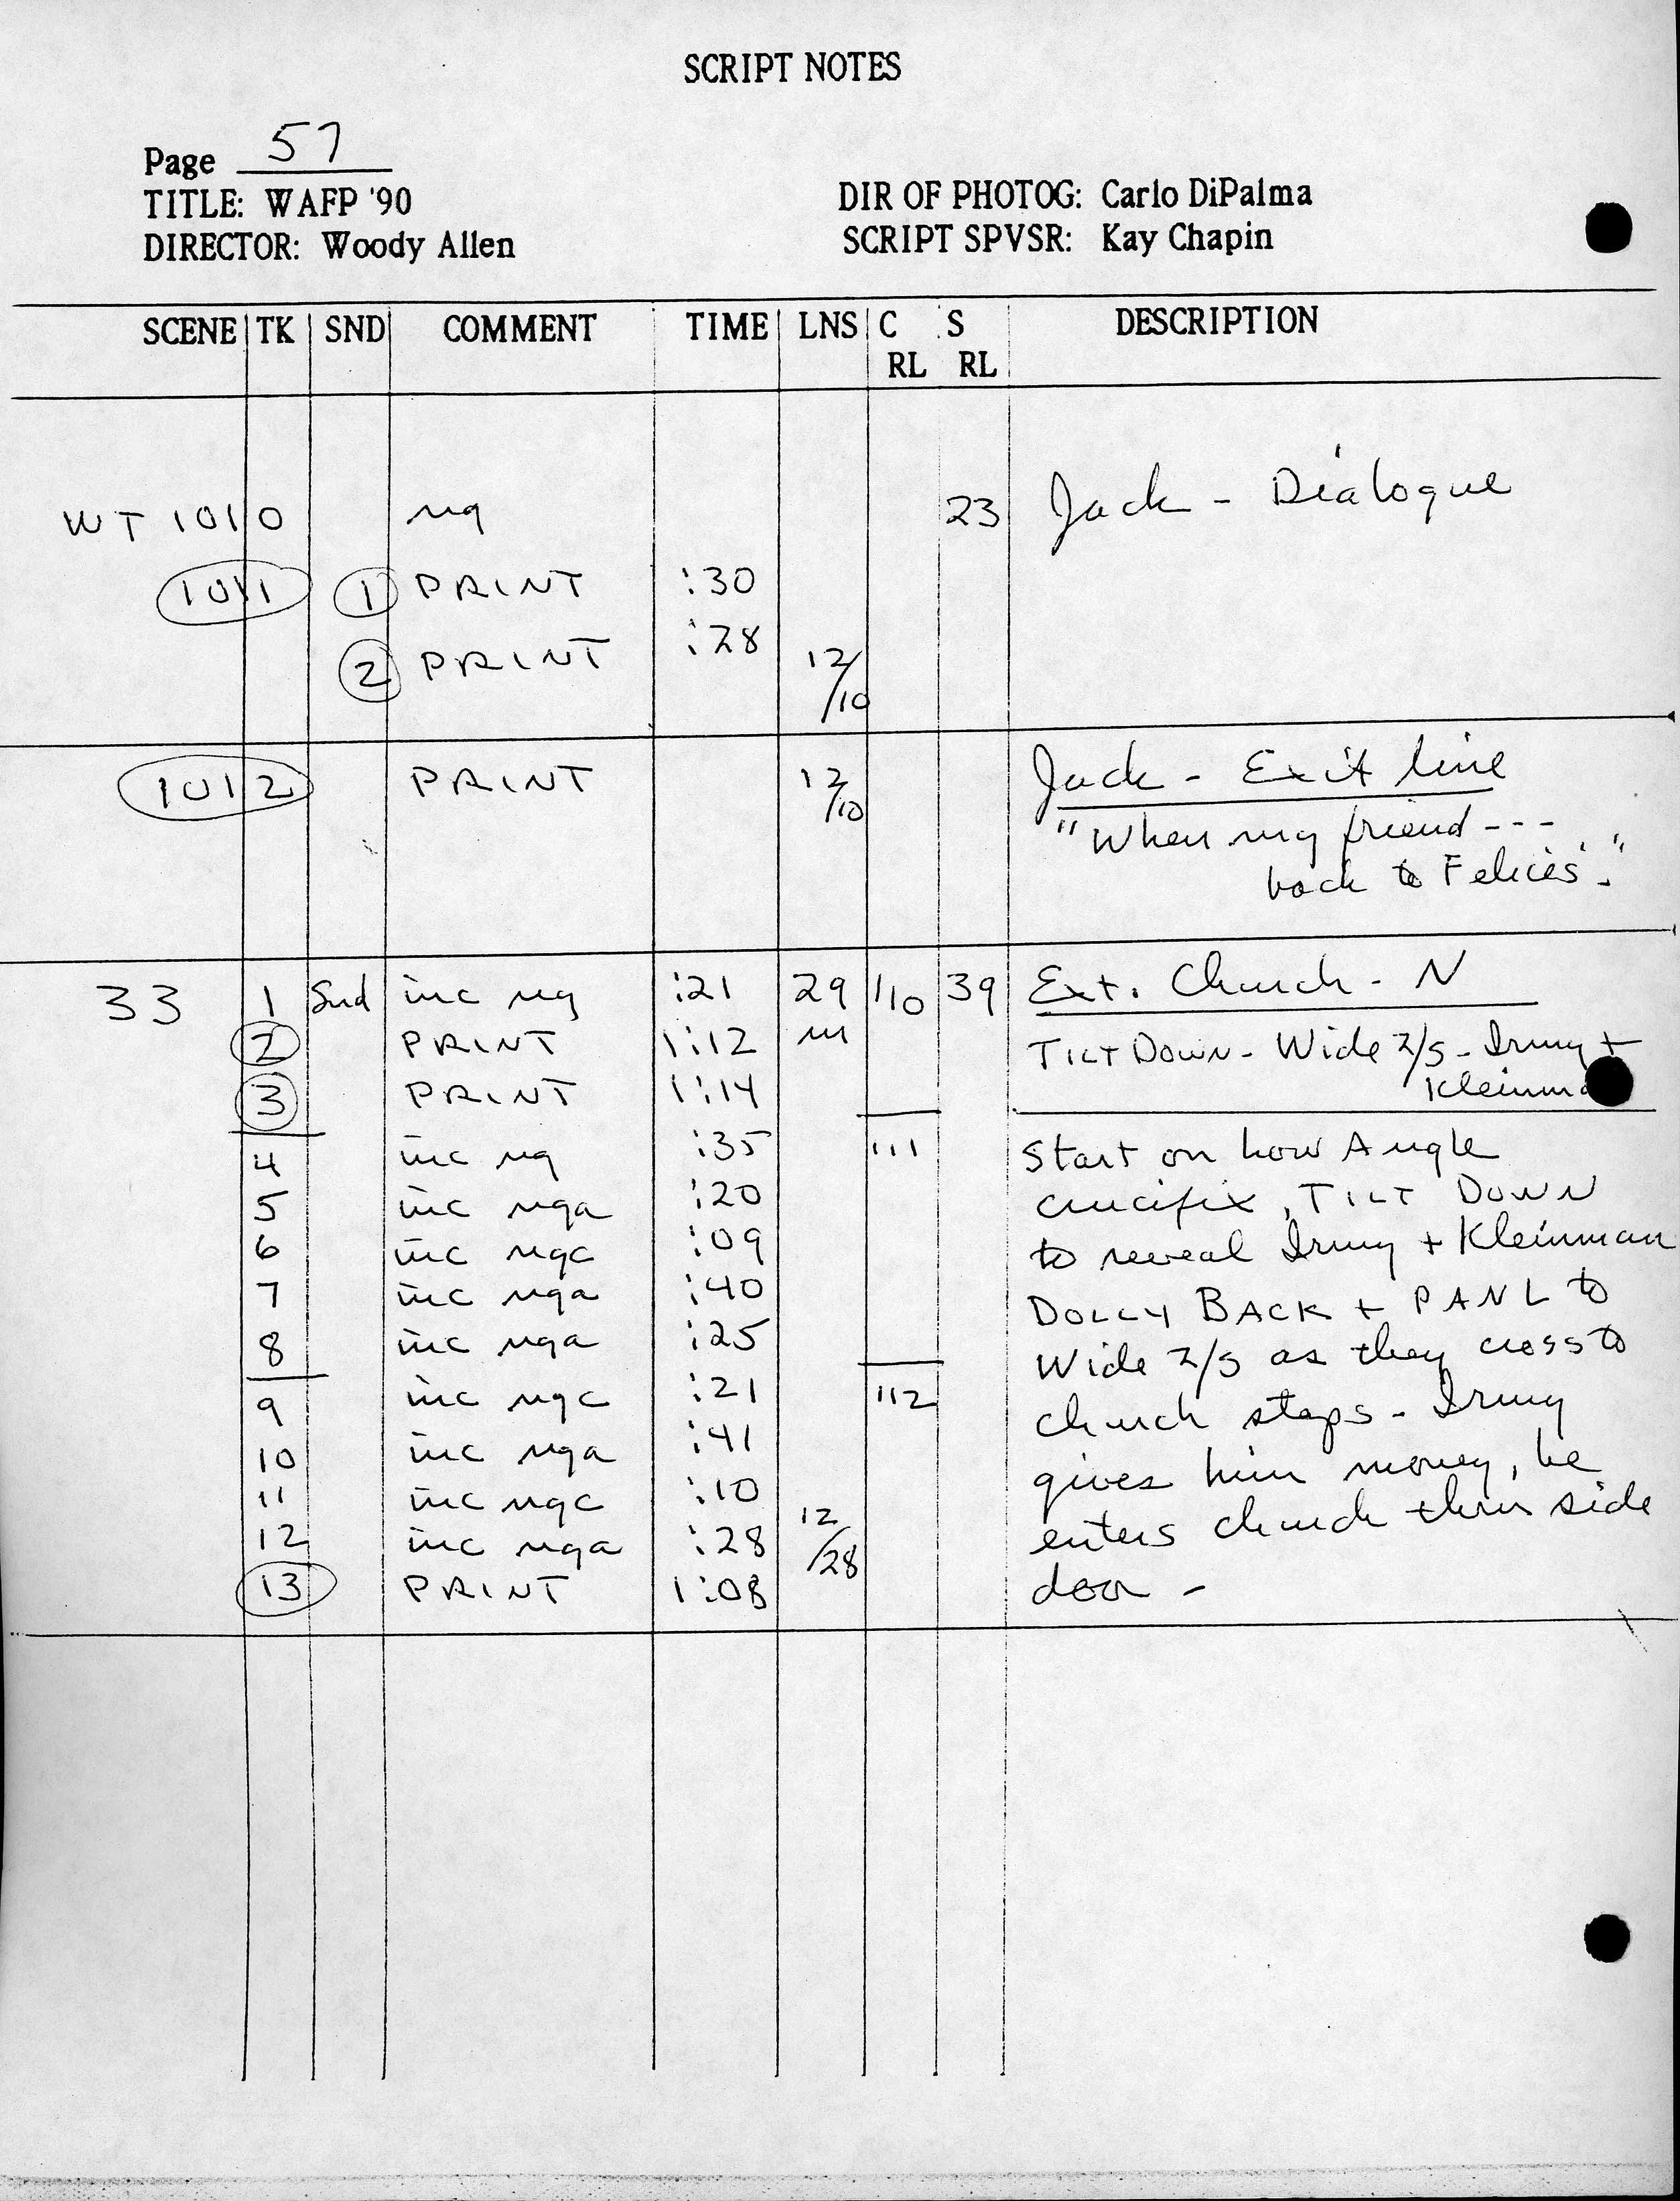 SCRIPT NOTES
Page 57
TITLE: WAFP '90
DIR OF PHOTOG: Carlo DiPalma
DIRECTOR: Woody Allen
SCRIPT SPVSR: Kay Chapin
SCENE TK SND COMMENT TIME LNS C RL S RL DESCRIPTION
WT 1010 ng 23 Jack - Dialogue
1011 1 PRINT :30
2 PRINT :28
12/10
1012 PRINT 12/10 Jack - Exit line
"When my friend ---
back to Felice's."
33 1 Snd inc ng :21 29 110 39 Ext. Church - N
2 PRINT 1:12 m TILT DOWN - Wide 2/s - Irmy +
3 PRINT 1:14 Kleinma
4 inc ng :35 111 Start on low Angle
5 inc nga :20 crucifix, TILT DOWN
6 inc ngc :09 to reveal Irmy + Kleinman
7 inc nga :40 DOLLY BACK + PAN L to
8 inc nga :25 Wide 2/s as they cross to
9 inc ngc :21 112 church steps - Irmy
10 inc nga :41 gives him money, he
11 inc ngc :10 enters church thru side
12 inc nga :28 12/28
13 PRINT 1:08 door -